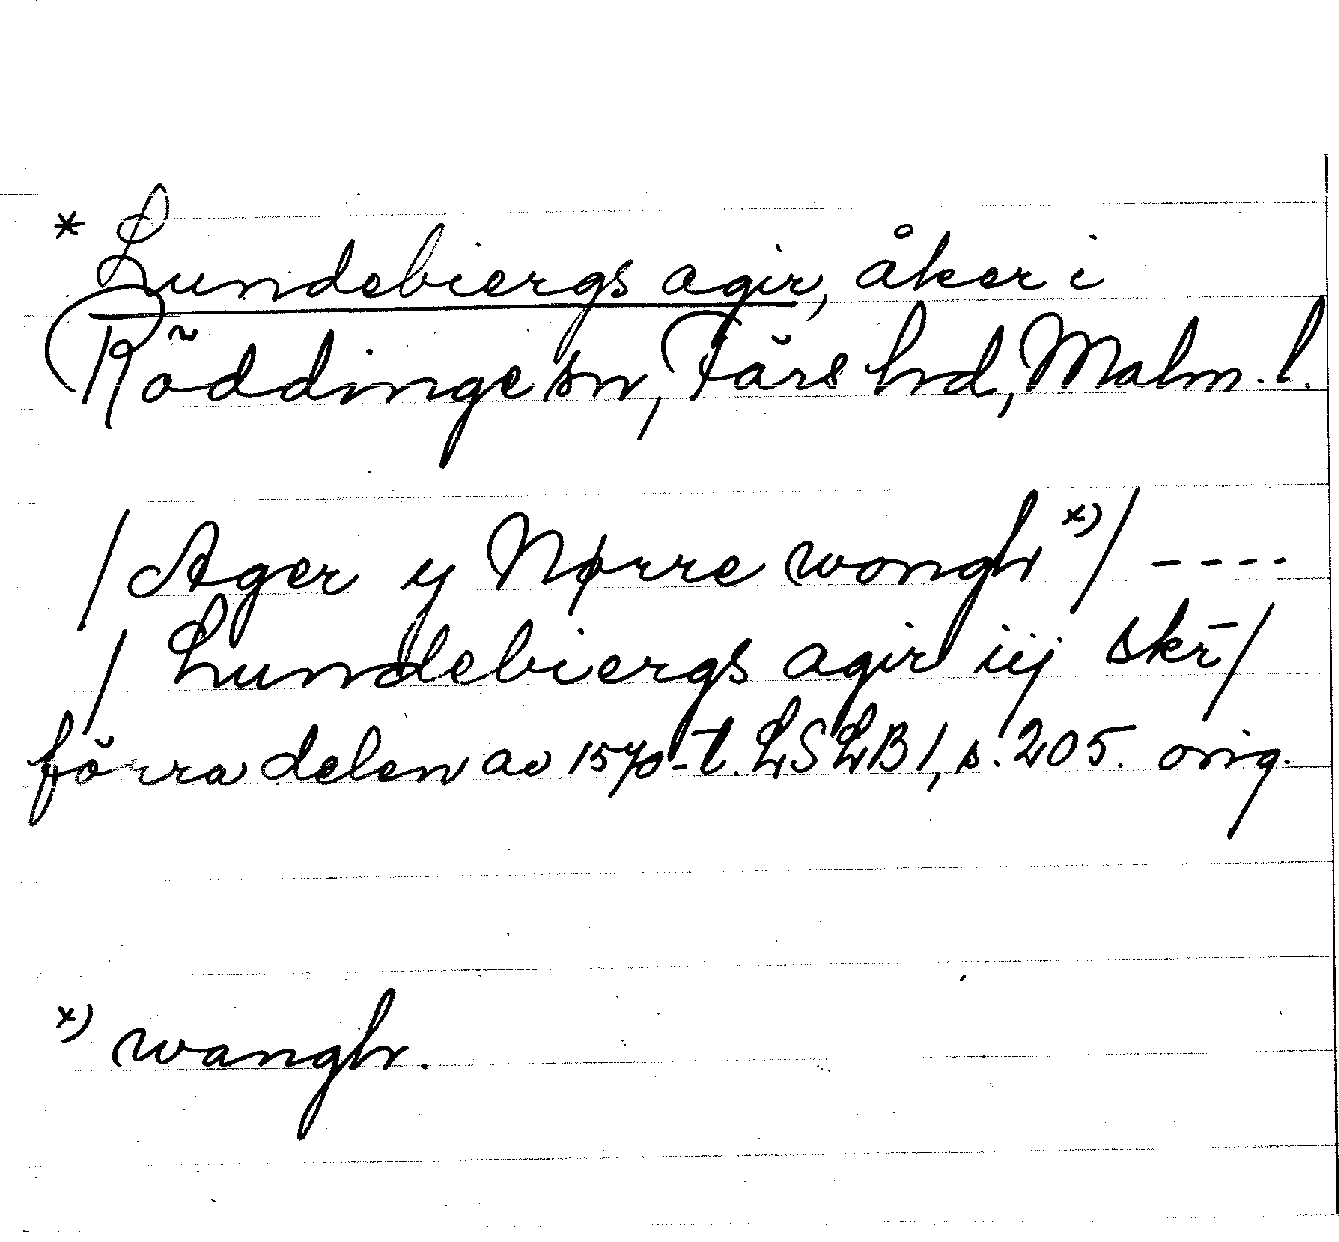 * Lundebiergs agir, åker i
Röddinge sn, Färs hd, Malm. l.
/ Ager y Nørre wongh x) / ----
/ Lundebiergs agir iij skr̄ /
förra delen av 1570-t. LSLB 1, s. 205. orig.
x) wangh.